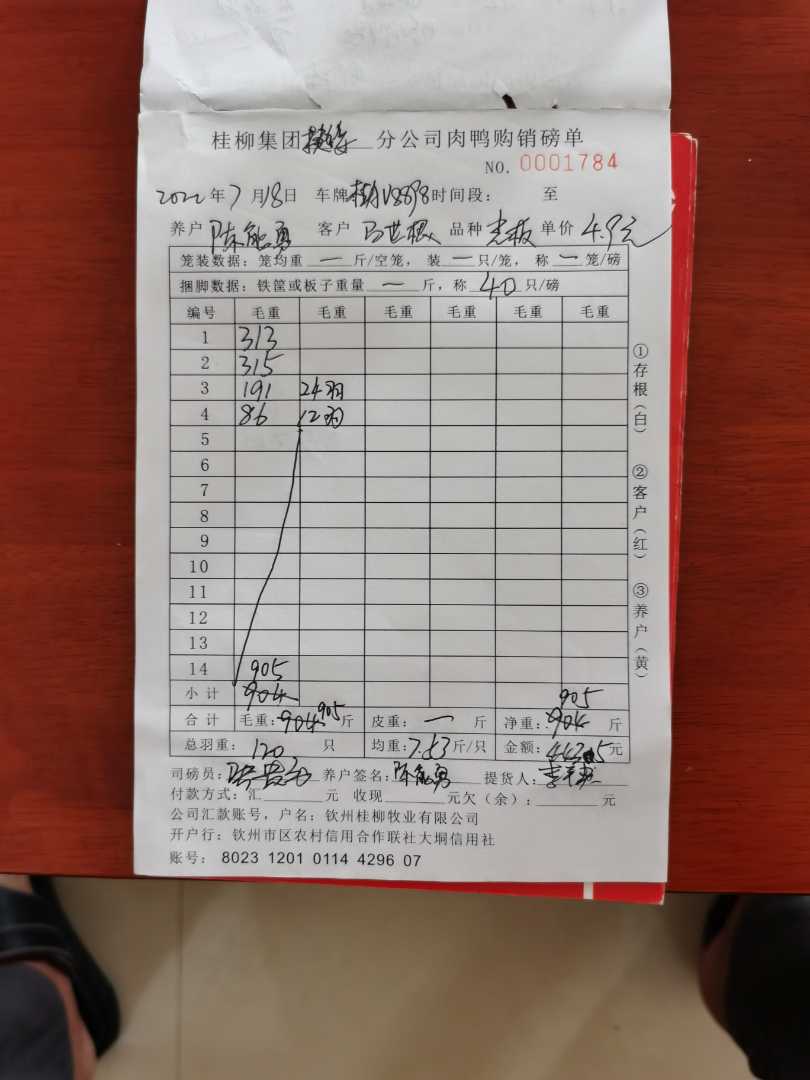 桂柳集团 分公司肉鸭购销磅单
NO. 0001784
2022年7月18日 车牌 时间段: 至
养户 陈能勇 客户 马世根 品种 光板 单价 4.9元
笼装数据: 笼均重 一 斤/空笼, 装 一 只/笼, 称 一 笼/磅
捆脚数据: 铁筐或板子重量 一 斤, 称 40 只/磅
编号 毛重 毛重 毛重 毛重 毛重 毛重
1 313
2 315
3 191 24羽
4 86 12羽
5
6
7
8
9
10
11
12
13
14 905
小计 904 905
合计 毛重: 904 905 斤 皮重: 一 斤 净重: 904 斤
总羽重: 120 只 均重: 7.53斤/只 金额: 元
司磅员: 养户签名: 陈能勇 提货人:
付款方式: 汇 元 收现 元欠(余): 元
公司汇款账号, 户名: 钦州桂柳牧业有限公司
开户行: 钦州市区农村信用合作联社大垌信用社
账号: 8023 1201 0114 4296 07
①存根(白)
②客户(红)
③养户(黄)